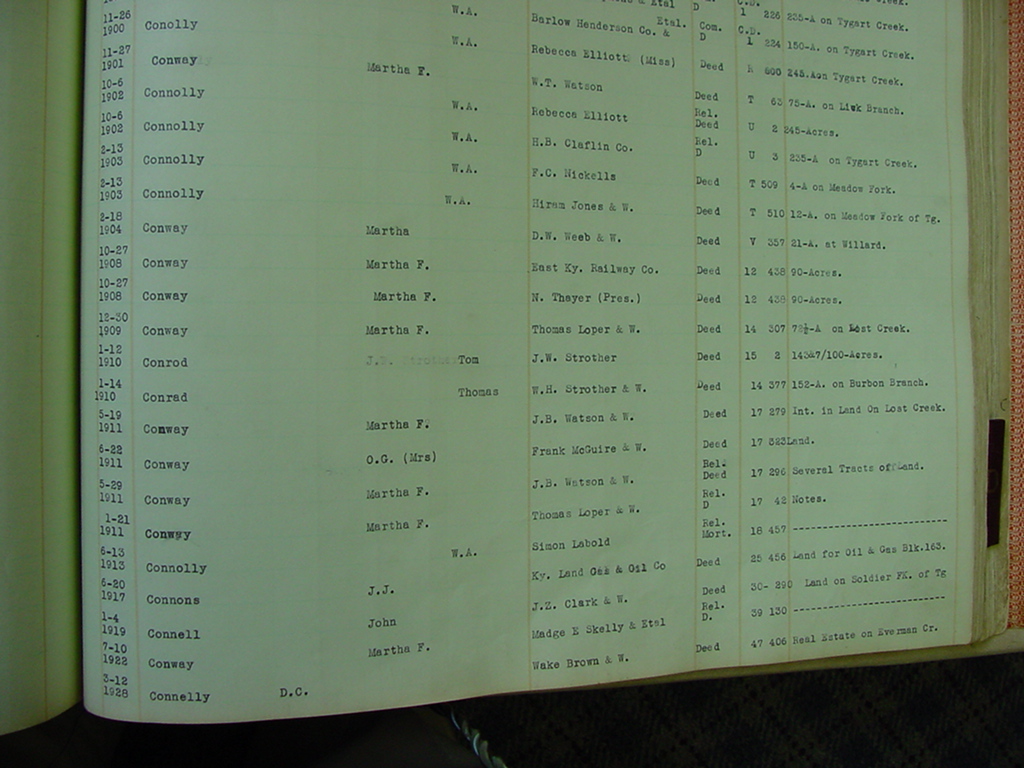 W.A. Barlow Henderson Co. & Etal. Com. D C.D. 1 224 150-A. on Tygart Creek.
1 226 235-A on Tygart Creek.
11-26 1900 Conolly W.A. Rebecca Elliott (Miss) Deed R 600 245.Aon Tygart Creek.
11-27 1901 Conway Martha F. W.T. Watson Deed T 63 75-A. on Lick Branch.
10-6 1902 Connolly W.A. Rebecca Elliott Rel. Deed U 2 245-Acres.
10-6 1902 Connolly W.A. H.B. Claflin Co. Rel. D U 3 235-A on Tygart Creek.
2-13 1903 Connolly W.A. F.C. Nickells Deed T 509 4-A on Meadow Fork.
2-13 1903 Connolly W.A. Hiram Jones & W. Deed T 510 12-A. on Meadow Fork of Tg.
2-18 1904 Conway Martha D.W. Weeb & W. Deed V 357 21-A. at Willard.
10-27 1908 Conway Martha F. East Ky. Railway Co. Deed 12 438 90-Acres.
10-27 1908 Conway Martha F. N. Thayer (Pres.) Deed 12 438 90-Acres.
12-30 1909 Conway Martha F. Thomas Loper & W. Deed 14 307 72½-A on Lost Creek.
1-12 1910 Conrod Tom J.W. Strother Deed 15 2 143&7/100-Acres.
1-14 1910 Conrad Thomas W.H. Strother & W. Deed 14 377 152-A. on Burbon Branch.
5-19 1911 Conway Martha F. J.B. Watson & W. Deed 17 279 Int. in Land On Lost Creek.
6-22 1911 Conway O.G. (Mrs) Frank McGuire & W. Deed 17 323Land.
5-29 1911 Conway Martha F. J.B. Watson & W. Rel. Deed 17 296 Several Tracts of Land.
1-21 1911 Conway Martha F. Thomas Loper & W. Rel. D 17 42 Notes.
6-13 1913 Connolly W.A. Simon Labold Rel. Mort. 18 457 -----------------------
6-20 1917 Connons J.J. Ky. Land Gas & Oil Co Deed 25 456 Land for Oil & Gas Blk.163.
1-4 1919 Connell John J.Z. Clark & W. Deed 30- 290 Land on Soldier FK. of Tg
7-10 1922 Conway Martha F. Madge E Skelly & Etal Rel. D. 39 130 -----------------------
3-12 1928 Connelly D.C. Wake Brown & W. Deed 47 406 Real Estate on Everman Cr.